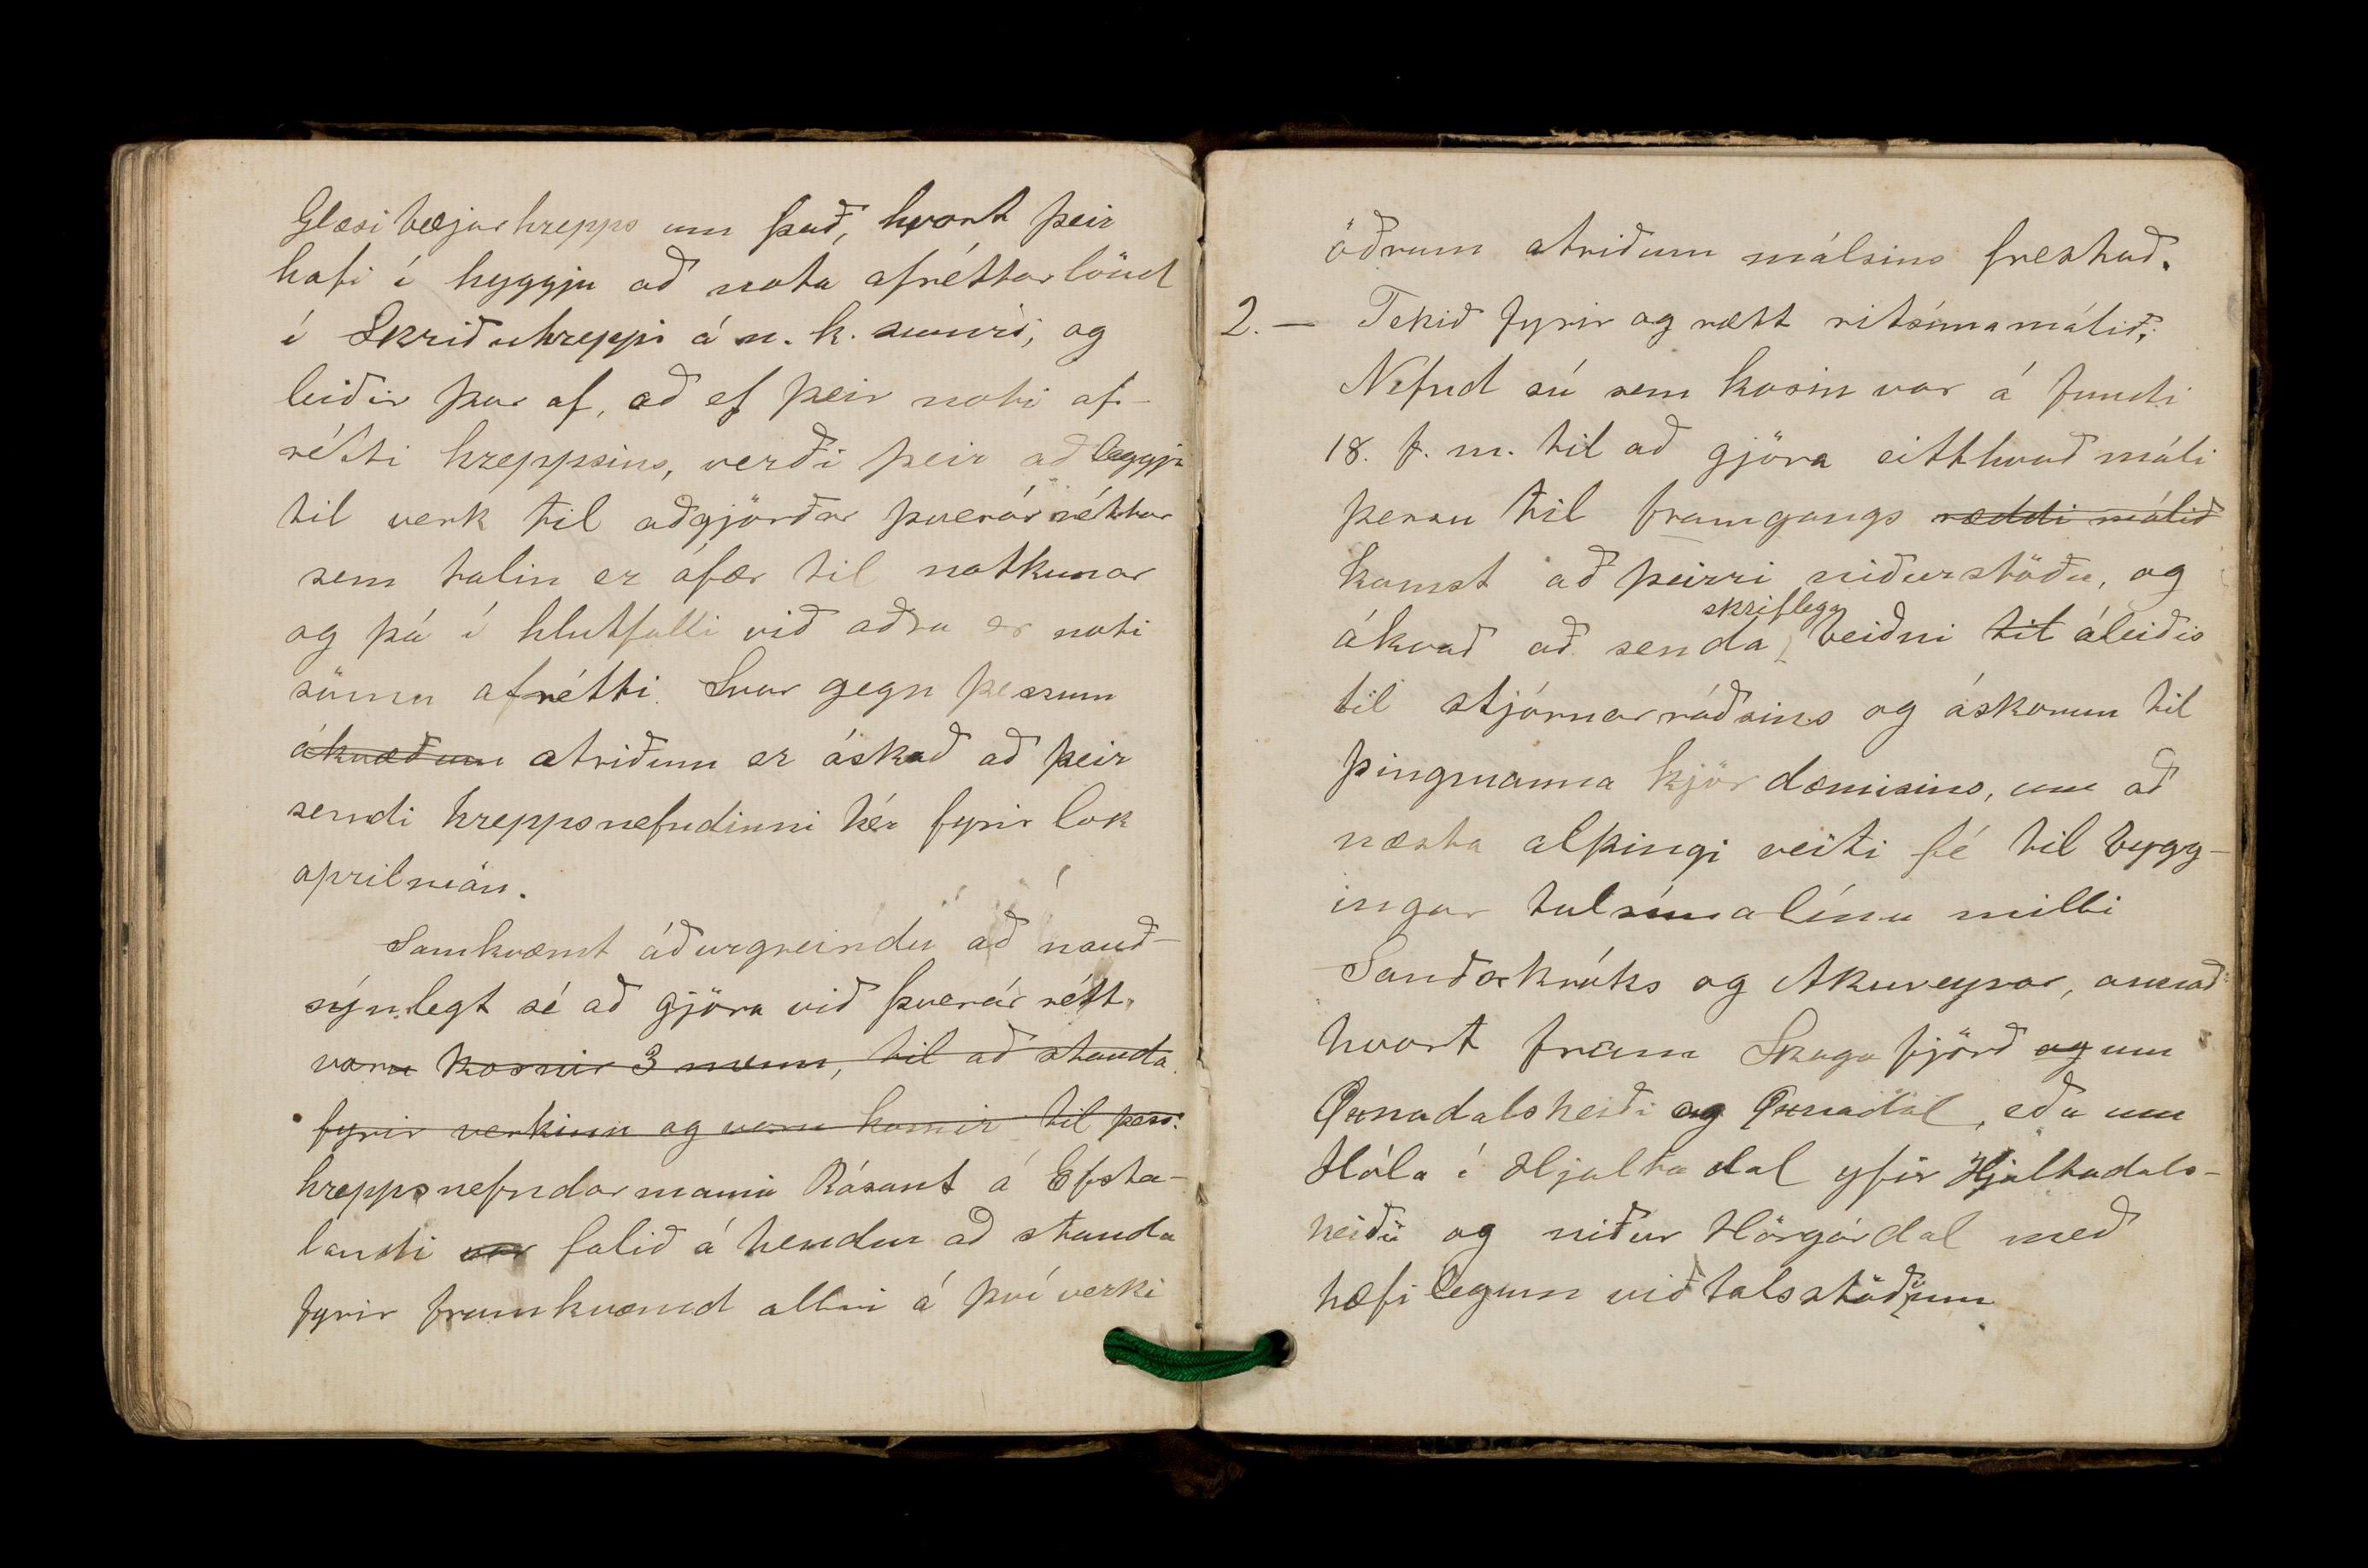 Glæsibæjarhrepps um það, hvort þeir
hafi í hyggju að nota afréttarlönd
í Skriðuhreppi á n. k. sumri, og
leiðir þar af, að ef þeir noti af-
rétti hreppsins, verði þeir að leggja
til verk til aðgjörðar þverárréttar
sem talin er ófær til notkunar
og þá í hlutfalli við aðra er noti
sömu afrétti. Svar gegn þessum
ákvæðum atriðum er áskað að þeir
sendi hreppsnefndinni hér fyrir lok
aprilmán.
Samkvæmt áðurgreindu að nauð-
sýnlegt sé að gjöra við þverár rétt,
voru kosnir 3 menn, til að standa
fyrir verkinu og voru kosnir til þess:
hreppsnefndarmanni Rósant á Efsta-
landi var falið á hendur að standa
fyrir framkvæmd allri á því verki
öðrum atriðum málsins frestað.
2. — Tekið fyrir og rætt ritsímamálið;
Nefnd sú sem kosin var á fundi
18. f. m. til að gjöra eitthvað máli
þessu til framgangs ræddi málið
komst að þeirri niðurstöðu, og
skriflega
ákvað að senda beiðni til áleiðis
til stjórnarráðsins og áskorun til
þingmanna kjördæmisins, um að
næsta alþingi veiti fé til bygg-
ingar talsímalínu milli
Sauðárkróks og Akureyrar, annað-
hvort fram Skagafjörð og um
Öxnadalsheiði og Öxnadal, eða um
Hóla í Hjaltadal yfir Hjaltadals-
heiði og niður Hörgárdal með
hæfilegum viðtalsstöðum